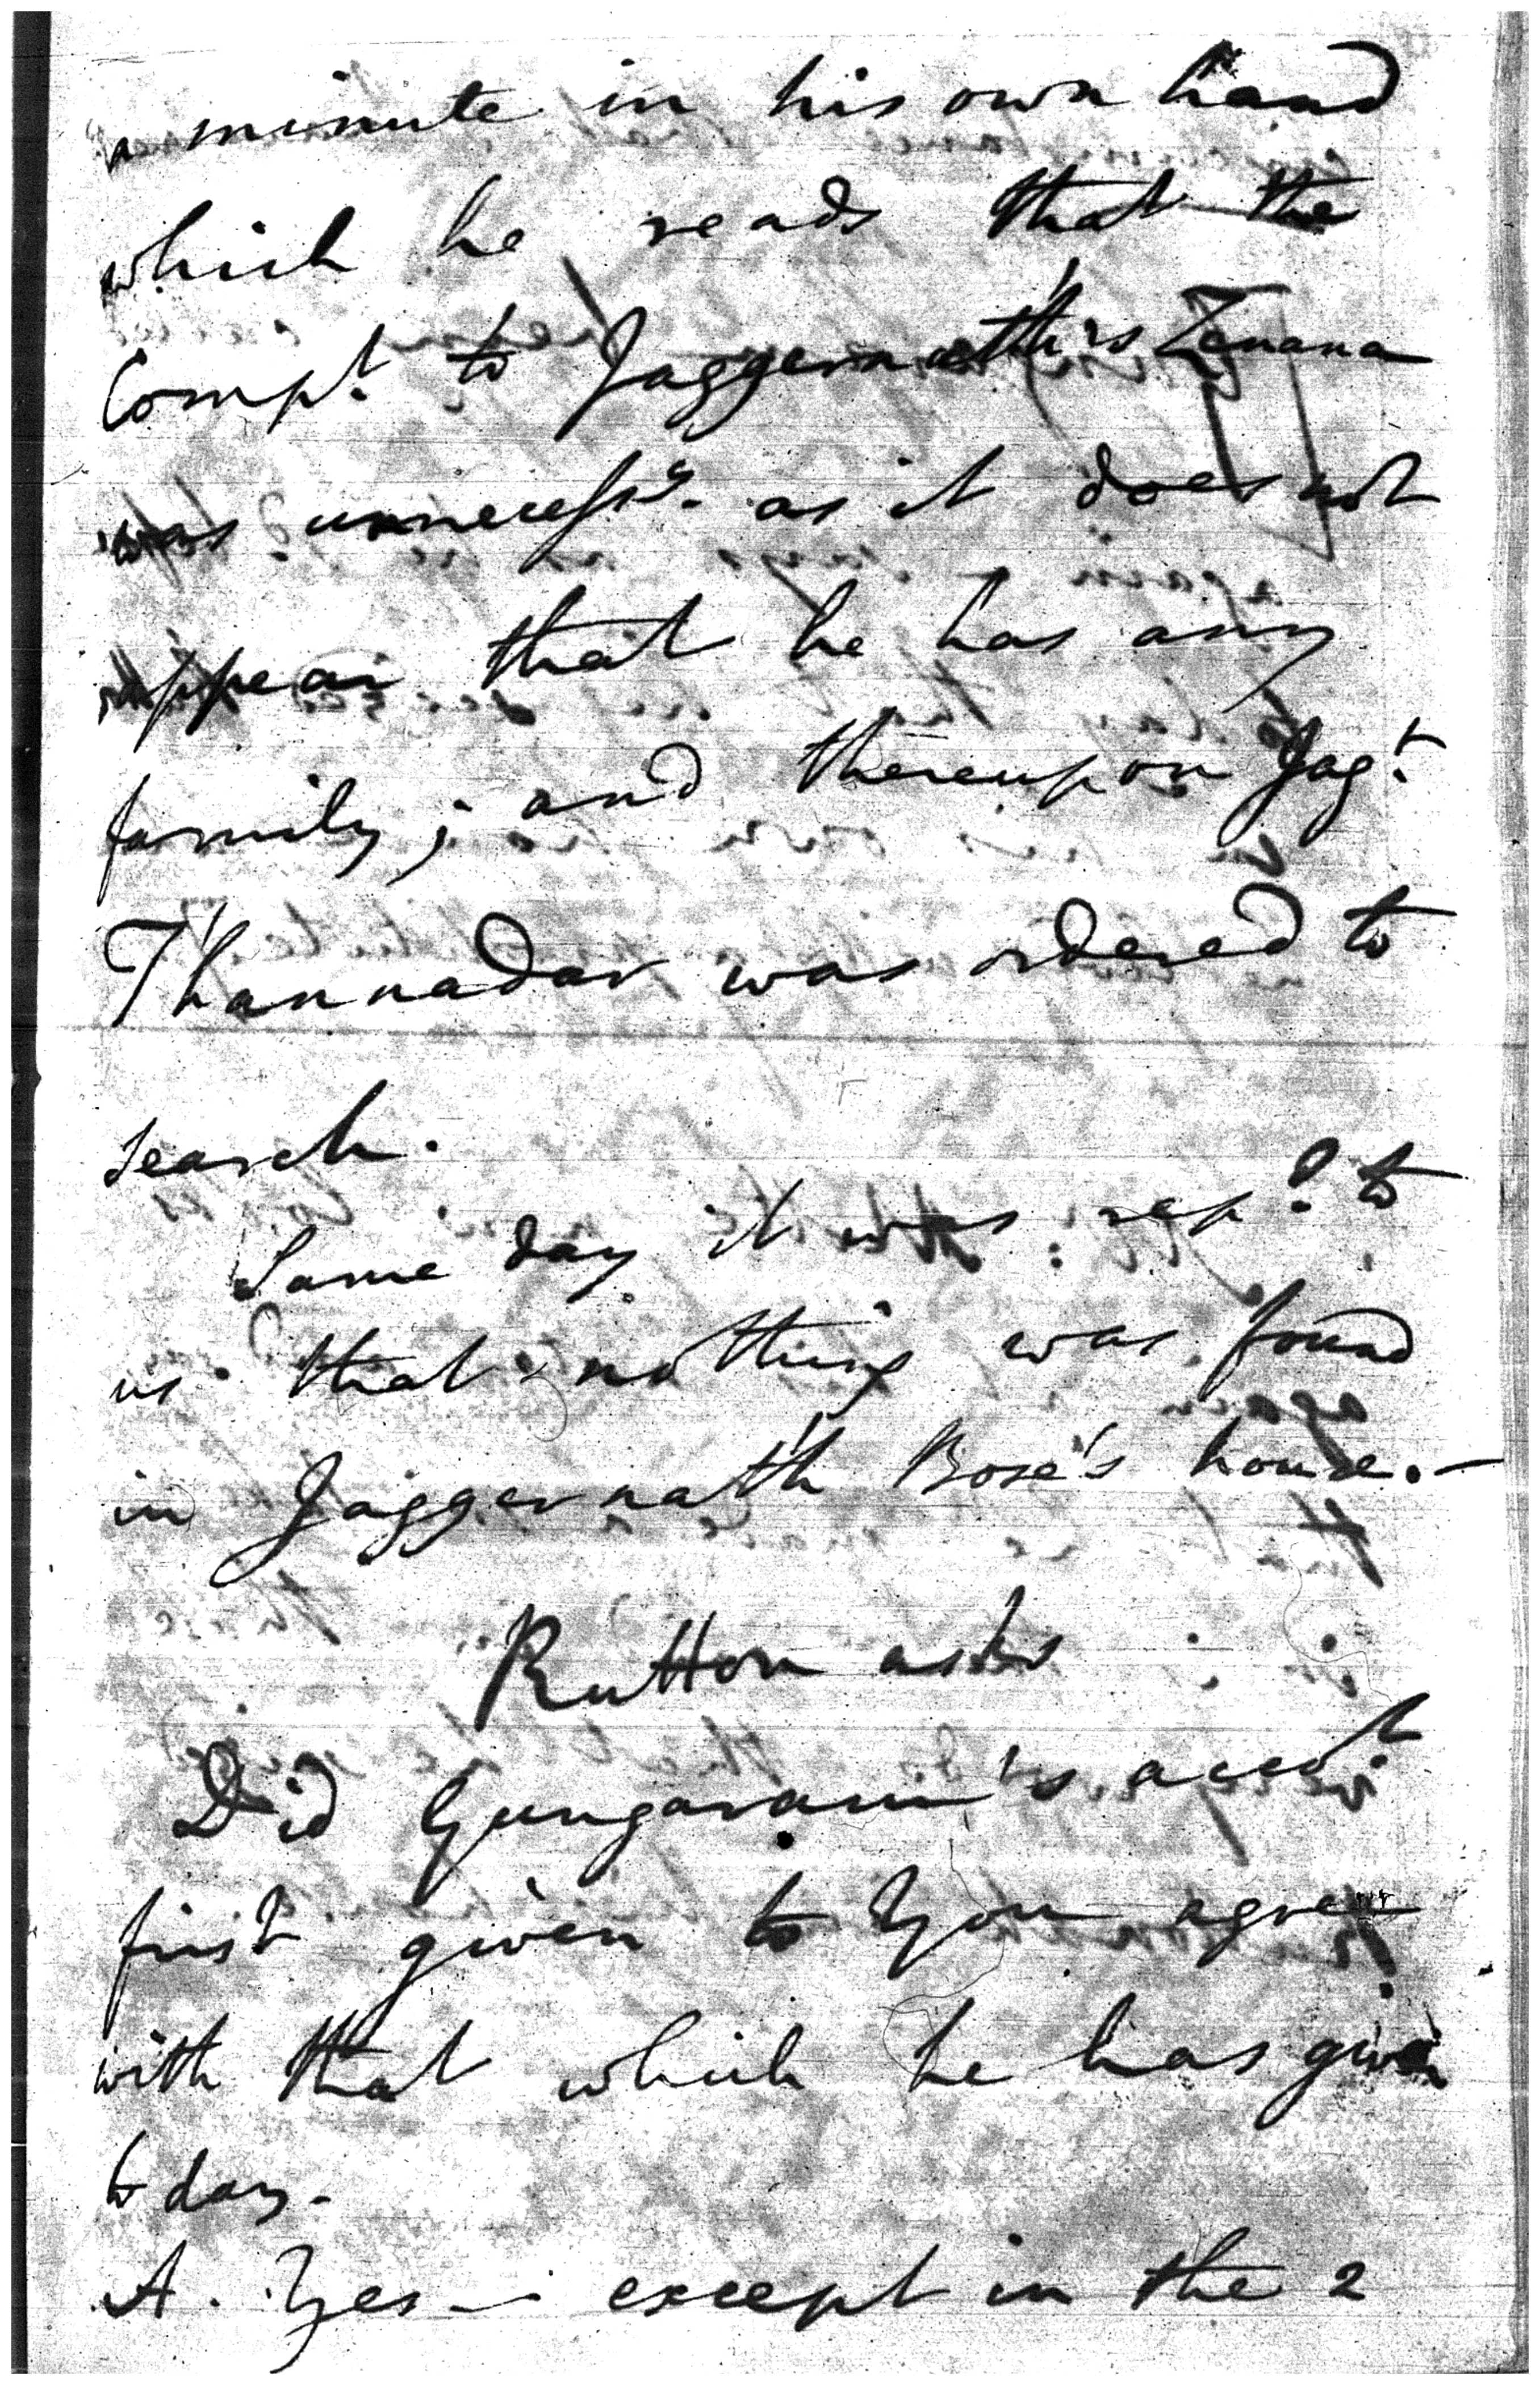 a minute in his own hand
which he reads that the
Compt. to Jaggernath's Zenana
was unnecessy. as it does not
appear that he has any
family; and thereupon Jagt.
Thannadar was ordered to
search.
Same day it was repd. to
us that nothing was found
in Jaggernath Bose's house.—
Rutton asks
Did Gungaram's accot
first given to you agree
with that which he has given
to day.
A. Yes — except in the 2